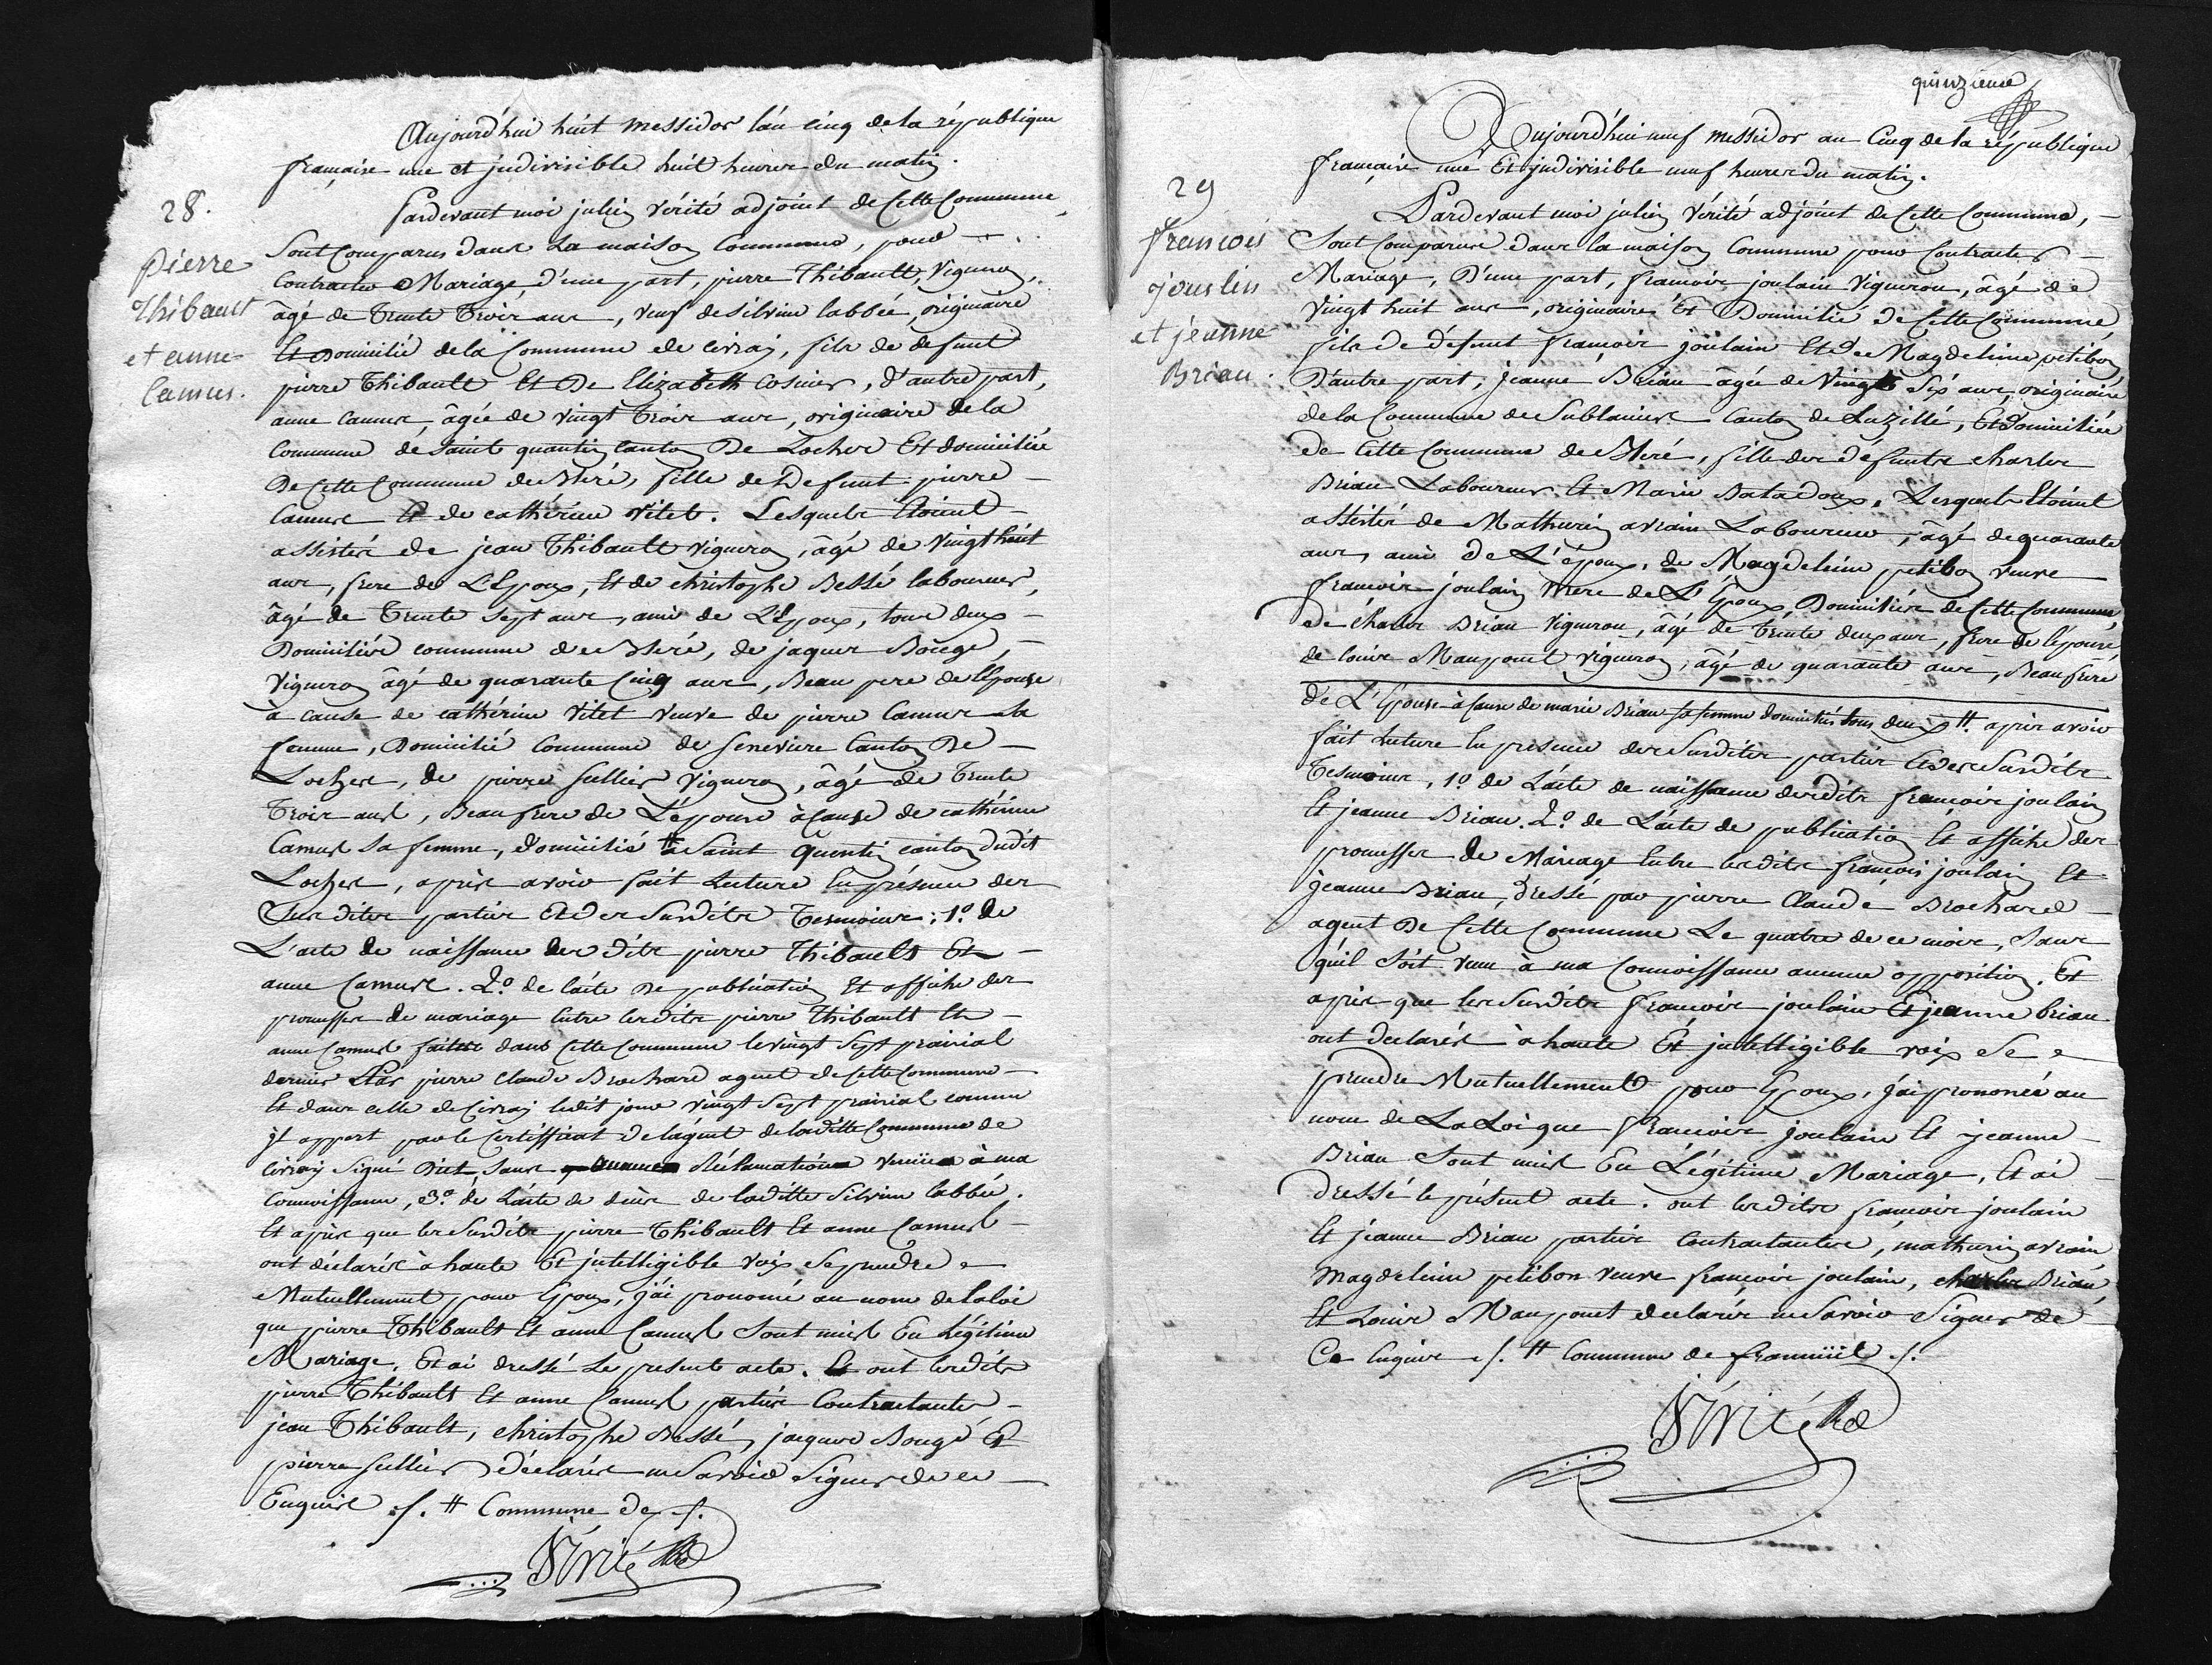 Aujourd'hui huit messidor l'an cinq de la république
française une et indivisible huit heures du matin.
28.
pierre
Thibault
et anne
Camus.
Pardevant moi julien Vérité adjoint de Cette Commune,
Sont Comparus dans La maison Commune, pour
Contracter Mariage, d'une part, pierre Thibault, Vigneron,
âgé de Trente Trois ans, veuf de silvine labbée, originaire
Et Domicilié de la Commune de civray, fils de defunt
pierre Thibault Et De Elizabeth Cosnier, d'autre part,
anne camus, âgée de vingt Trois ans, originaire de la
Commune de Saint quantin Canton De Loches Et domiciliée
De Cette Commune de Bleré, fille de Defunt pierre
Camus Et de cathérine Vitet. Lesquels Etoient
assistés de jean Thibault vigneron, âgé de vingt huit
ans, frere de L'Epoux, Et de christophe Bessé laboureur,
âgé de Trente Sept ans, ami de L'Epoux, tous deux
Domiciliés commune de Bleré, de jaques Bougé,
Vigneron âgé de quarante Cinq ans, Beau pere de l'Epouse
à cause de cathérine Vitet veuve de pierre Camus sa
femme, Domicilié Commune de Seneviere Canton De
Loches, de pierre Sellier Vigneron, âgé de Trente
Trois ans, Beau frere de L'épouse à Cause de cathérine
Camus Sa femme, domicilié # à Saint Quentin canton dudit
Loches, après avoir fait Lecture En présence des
Sus dites parties Et des Susdits Temoins; 1.º de
L'acte de naissance des dits pierre Thibault Et
anne Camus. 2.º de l'acte De publication Et affiche des
promesses de mariage Entre lesdits pierre Thibault Et
anne Camus faites dans Cette Commune le vingt Sept prairial
dernier Par pierre Claude Brochard agent de Cette Commune
Et dans celle de Civray ledit jour vingt Sept prairial comme
Il appert par le Certifficat de l'agent de laditte Commune de
civray Signé Diet, Sans aucune réclamation venüe à ma
Connoissance, 3.º de L'acte de décès de laditte Silvine labbée.
Et après que les Susdits pierre Thibault Et anne Camus
ont déclarés à haute Et intelligible voix Se prendre
Mutuellement pour Epoux, j'ai prononcé au nom de la loi
que pierre Thibault Et anne Camus Sont unis En Légitime
Mariage, Et ai dressé Le présent acte. Et ont lesdits
pierre Thibault Et anne Camus parties Contractantes
jean Thibault, christophe Bessé, jacques Bougé Et
pierre Sellier déclarés ne Savoir Signer de ce
Enquis ./. # Commune de ./.
Vérité
quinzieme
Aujourd'hui neuf messidor an Cinq de la république
française une Et indivisible neuf heures du matin.
29
françois
jouslin
et jeanne
Briau.
Pardevant moi julien Vérité adjoint de Cette Commune,
Sont Comparus dans la maison Commune pour Contracter
Mariage, D'une part, françois joulain Vigneron, âgé de
Vingt huit ans, originaire Et Domicilié de Cette Commune
fils de défunt françois joulain Et de Magdeleine petibon
D'autre part, Jeanne Briau âgée de Vingt Six ans, originaire
de la Commune de Sublaines Canton de Luzillé, Et Domiciliée
de Cette Commune de Bleré, fille des défunts charles
Briau Laboureur Et Marie Batadoux. Lesquels Etoient
assistés de Mathurin avrain Laboureur, âgé de quarante
ans, ami de L'époux, de Magdeleine petibon veuve
françois joulain Mere de L'Epoux, Domiciliés de Cette Commune,
de charles Briau Vigneron, âgé de Trente deux ans, frere de l'épouse,
de louis Mauponet vigneron, âgé de quarante ans, Beau frere
de L'Epouse à Cause de marie Briau Sa femme domiciliés tous deux #. après avoir
fait Lecture En présence des Susdites parties Et des Susdits
Temoins, 1.º de L'acte de naissance desdits françois joulain
Et jeanne Briau. 2.º de L'acte de publication Et affiche des
promesses de Mariage Entre lesdits françois joulain Et
jeanne Briau, dressé par pierre Claude Brochard
agent De Cette Commune Le quatre de ce mois, Sans
qu'il Soit venu à ma Connoissance aucune opposition. Et
après que les Susdits françois joulain Et jeanne briau
ont declarés à haute Et intelligible voix Se
prendre Mutuellement pour Epoux, j'ai prononcé au
nom de La Loi que françois joulain Et jeanne
Briau Sont unis En Légitime Mariage, Et ai
dressé le présent acte. ont lesdits françois joulain
Et jeanne Briau parties Contractantes, mathurin avrain
Magdeleine petibon veuve françois joulain, charles Briau,
Et Louis Mauponet declarés ne Savoir Signer de
Ce Enquis ./. # Commune de francüeil ./.
Vérité